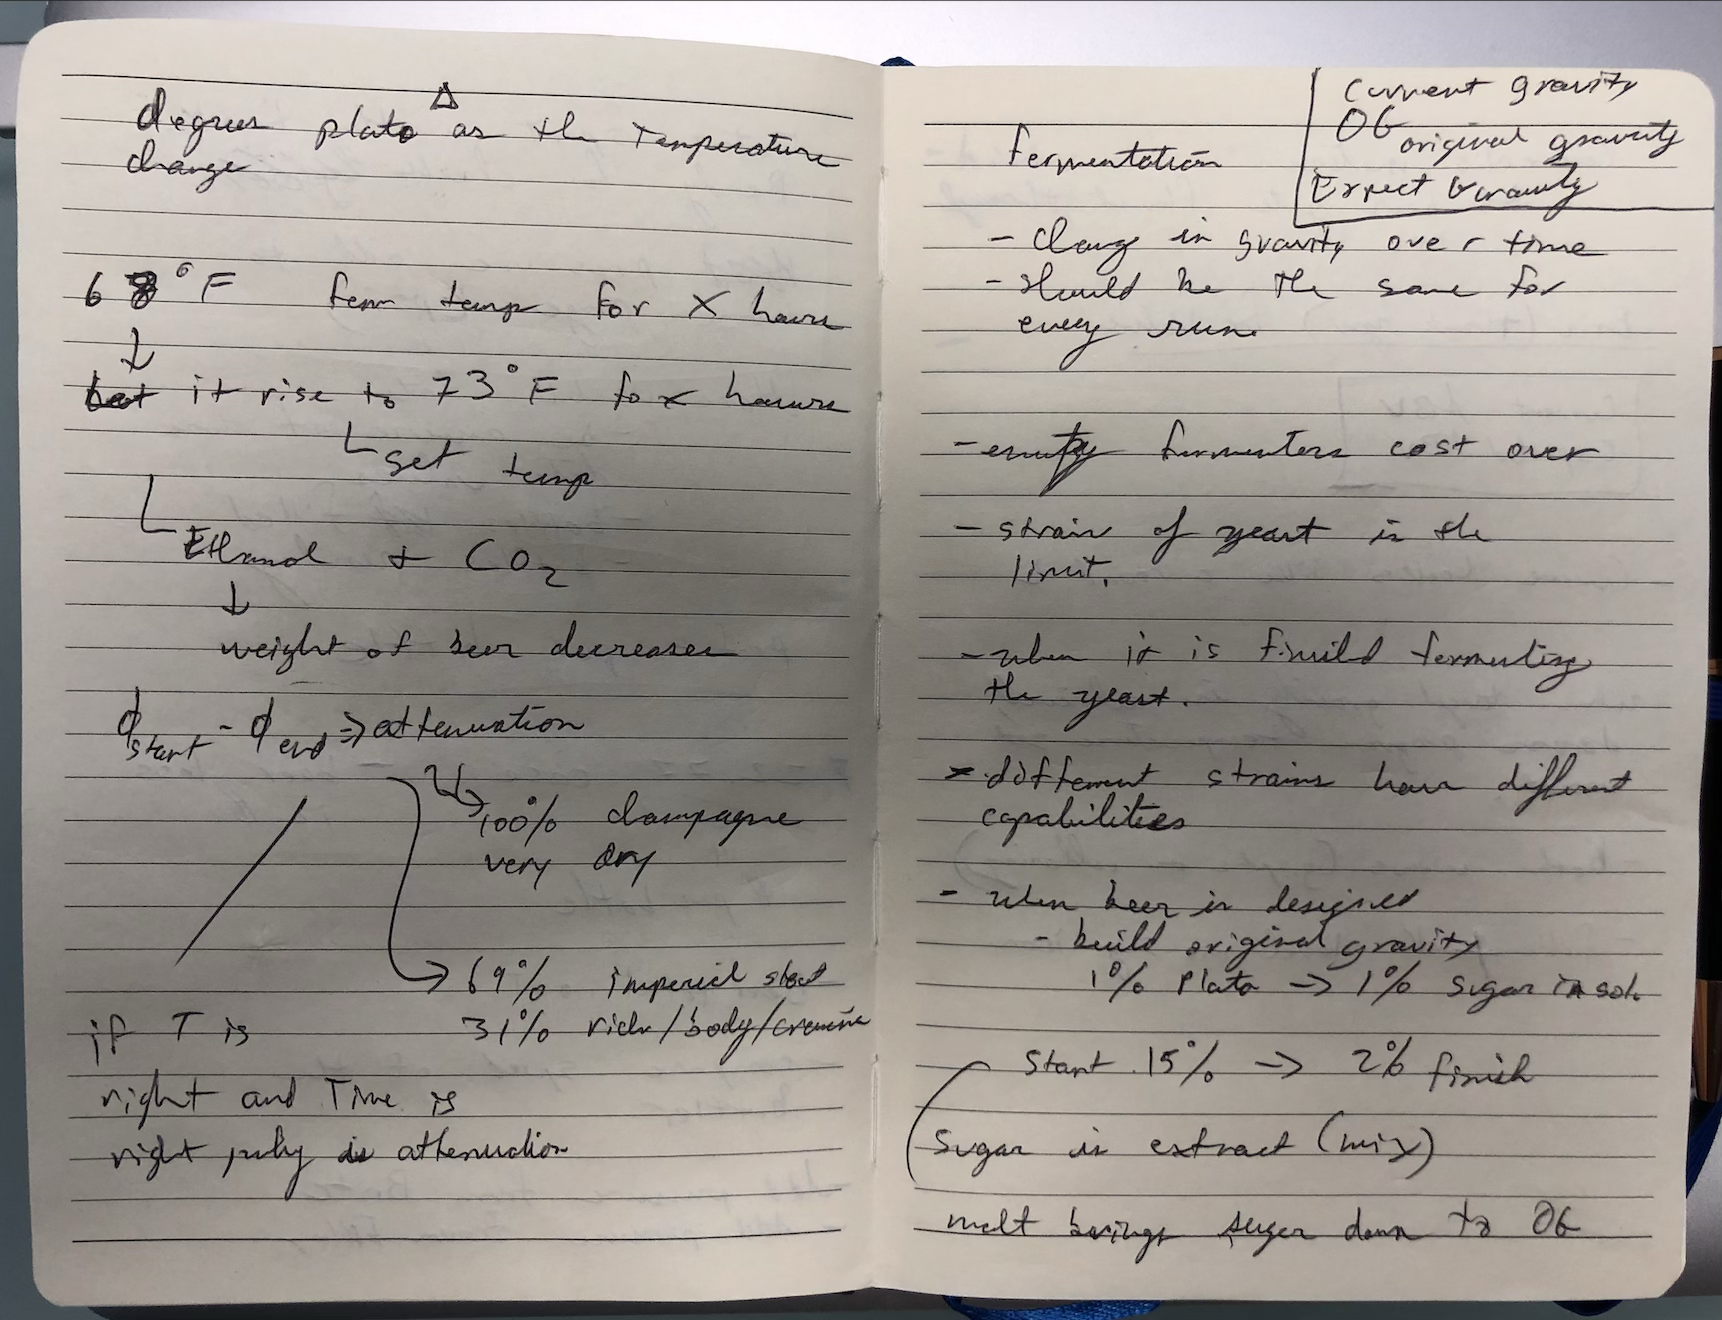 degrees plato Δ as the Temperature
change
68°F ferm temp for X hours
↓
let it rise to 73°F for hours
set temp
Ethanol + CO2
↓
weight of beer decreases
ϕstart - ϕend => attenuation
100% champagne
very dry
69% imperial stout
31% rich/body/creamine
if T is
right and Time is
right attenuation
Current gravity
OG original gravity
Expect Gravity
Fermentation
- chang in gravity over time
- should be the same for
every run.
- empty fermenters cost over
- strain of yeast is the
limit.
- when it is finild fermenting
the yeast.
- different strains have different
capabilities
- when beer is designed
- build original gravity
1% Plato -> 1% sugar in sol.
Start 15% -> 2% finish
Sugar in extract (mix)
melt brings suger down to OG